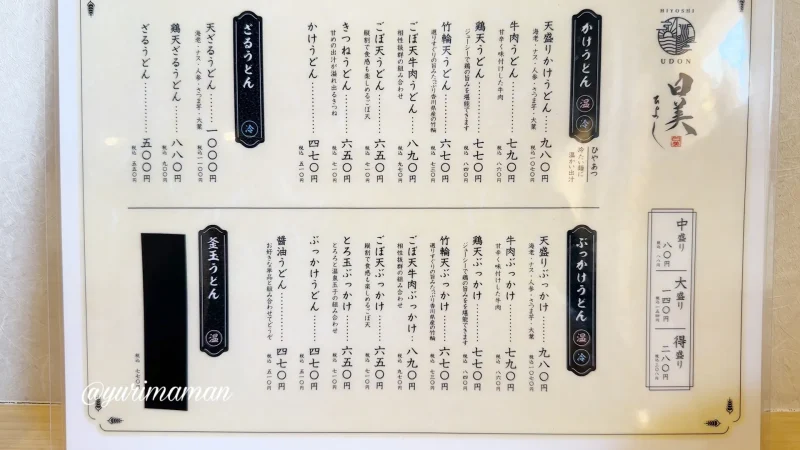 HIYOSHI
UDON
日美
ひよし
中盛り
八〇円
税込 八八円
大盛り
一四〇円
税込一五四円
得盛り
二八〇円
税込三〇八円
かけうどん 温 冷
ひやあつ
冷たい麺に
温かい出汁
天盛りかけうどん……九八〇円
海老・ナス・人参・さつま芋・大葉
税込一〇七〇円
牛肉うどん……七九〇円
甘辛く味付けした牛肉
税込 八六〇円
鶏天うどん……七七〇円
ジューシーで鶏の旨みを堪能できます
税込 八四〇円
竹輪天うどん……六七〇円
選りすぐりの旨みたっぷり香川県産の竹輪
税込 七三〇円
ごぼ天牛肉うどん……八九〇円
相性抜群の組み合わせ
税込 九七〇円
ごぼ天うどん……六五〇円
縦割で食感も楽しめるごぼ天
税込 七一〇円
きつねうどん……六五〇円
甘めの出汁が溢れ出るきつね
税込 七一〇円
かけうどん……四七〇円
税込 五一〇円
ざるうどん 冷
天ざるうどん……一〇〇〇円
海老・ナス・人参・さつま芋・大葉
税込 一一〇〇円
鶏天ざるうどん……八〇〇円
税込 八八〇円
ざるうどん……五〇〇円
税込 五五〇円
ぶっかけうどん 温 冷
天盛りぶっかけ……九八〇円
海老・ナス・人参・さつま芋・大葉
税込一〇七〇円
牛肉ぶっかけ……七九〇円
甘辛く味付けした牛肉
税込 八六〇円
鶏天ぶっかけ……七七〇円
ジューシーで鶏の旨みを堪能できます
税込 八四〇円
竹輪天ぶっかけ……六七〇円
選りすぐりの旨みたっぷり香川県産の竹輪
税込 七三〇円
ごぼ天牛肉ぶっかけ……八九〇円
相性抜群の組み合わせ
税込 九七〇円
ごぼ天ぶっかけ……六五〇円
縦割で食感も楽しめるごぼ天
税込 七一〇円
とろ玉ぶっかけ……六五〇円
とろろと温泉玉子の組み合わせ
税込 七一〇円
ぶっかけうどん……四七〇円
税込 五一〇円
醤油うどん……四七〇円
お好きな単品と組み合わせてどうぞ
税込 五一〇円
釜玉うどん 温
税込 七七〇円
@yurimaman